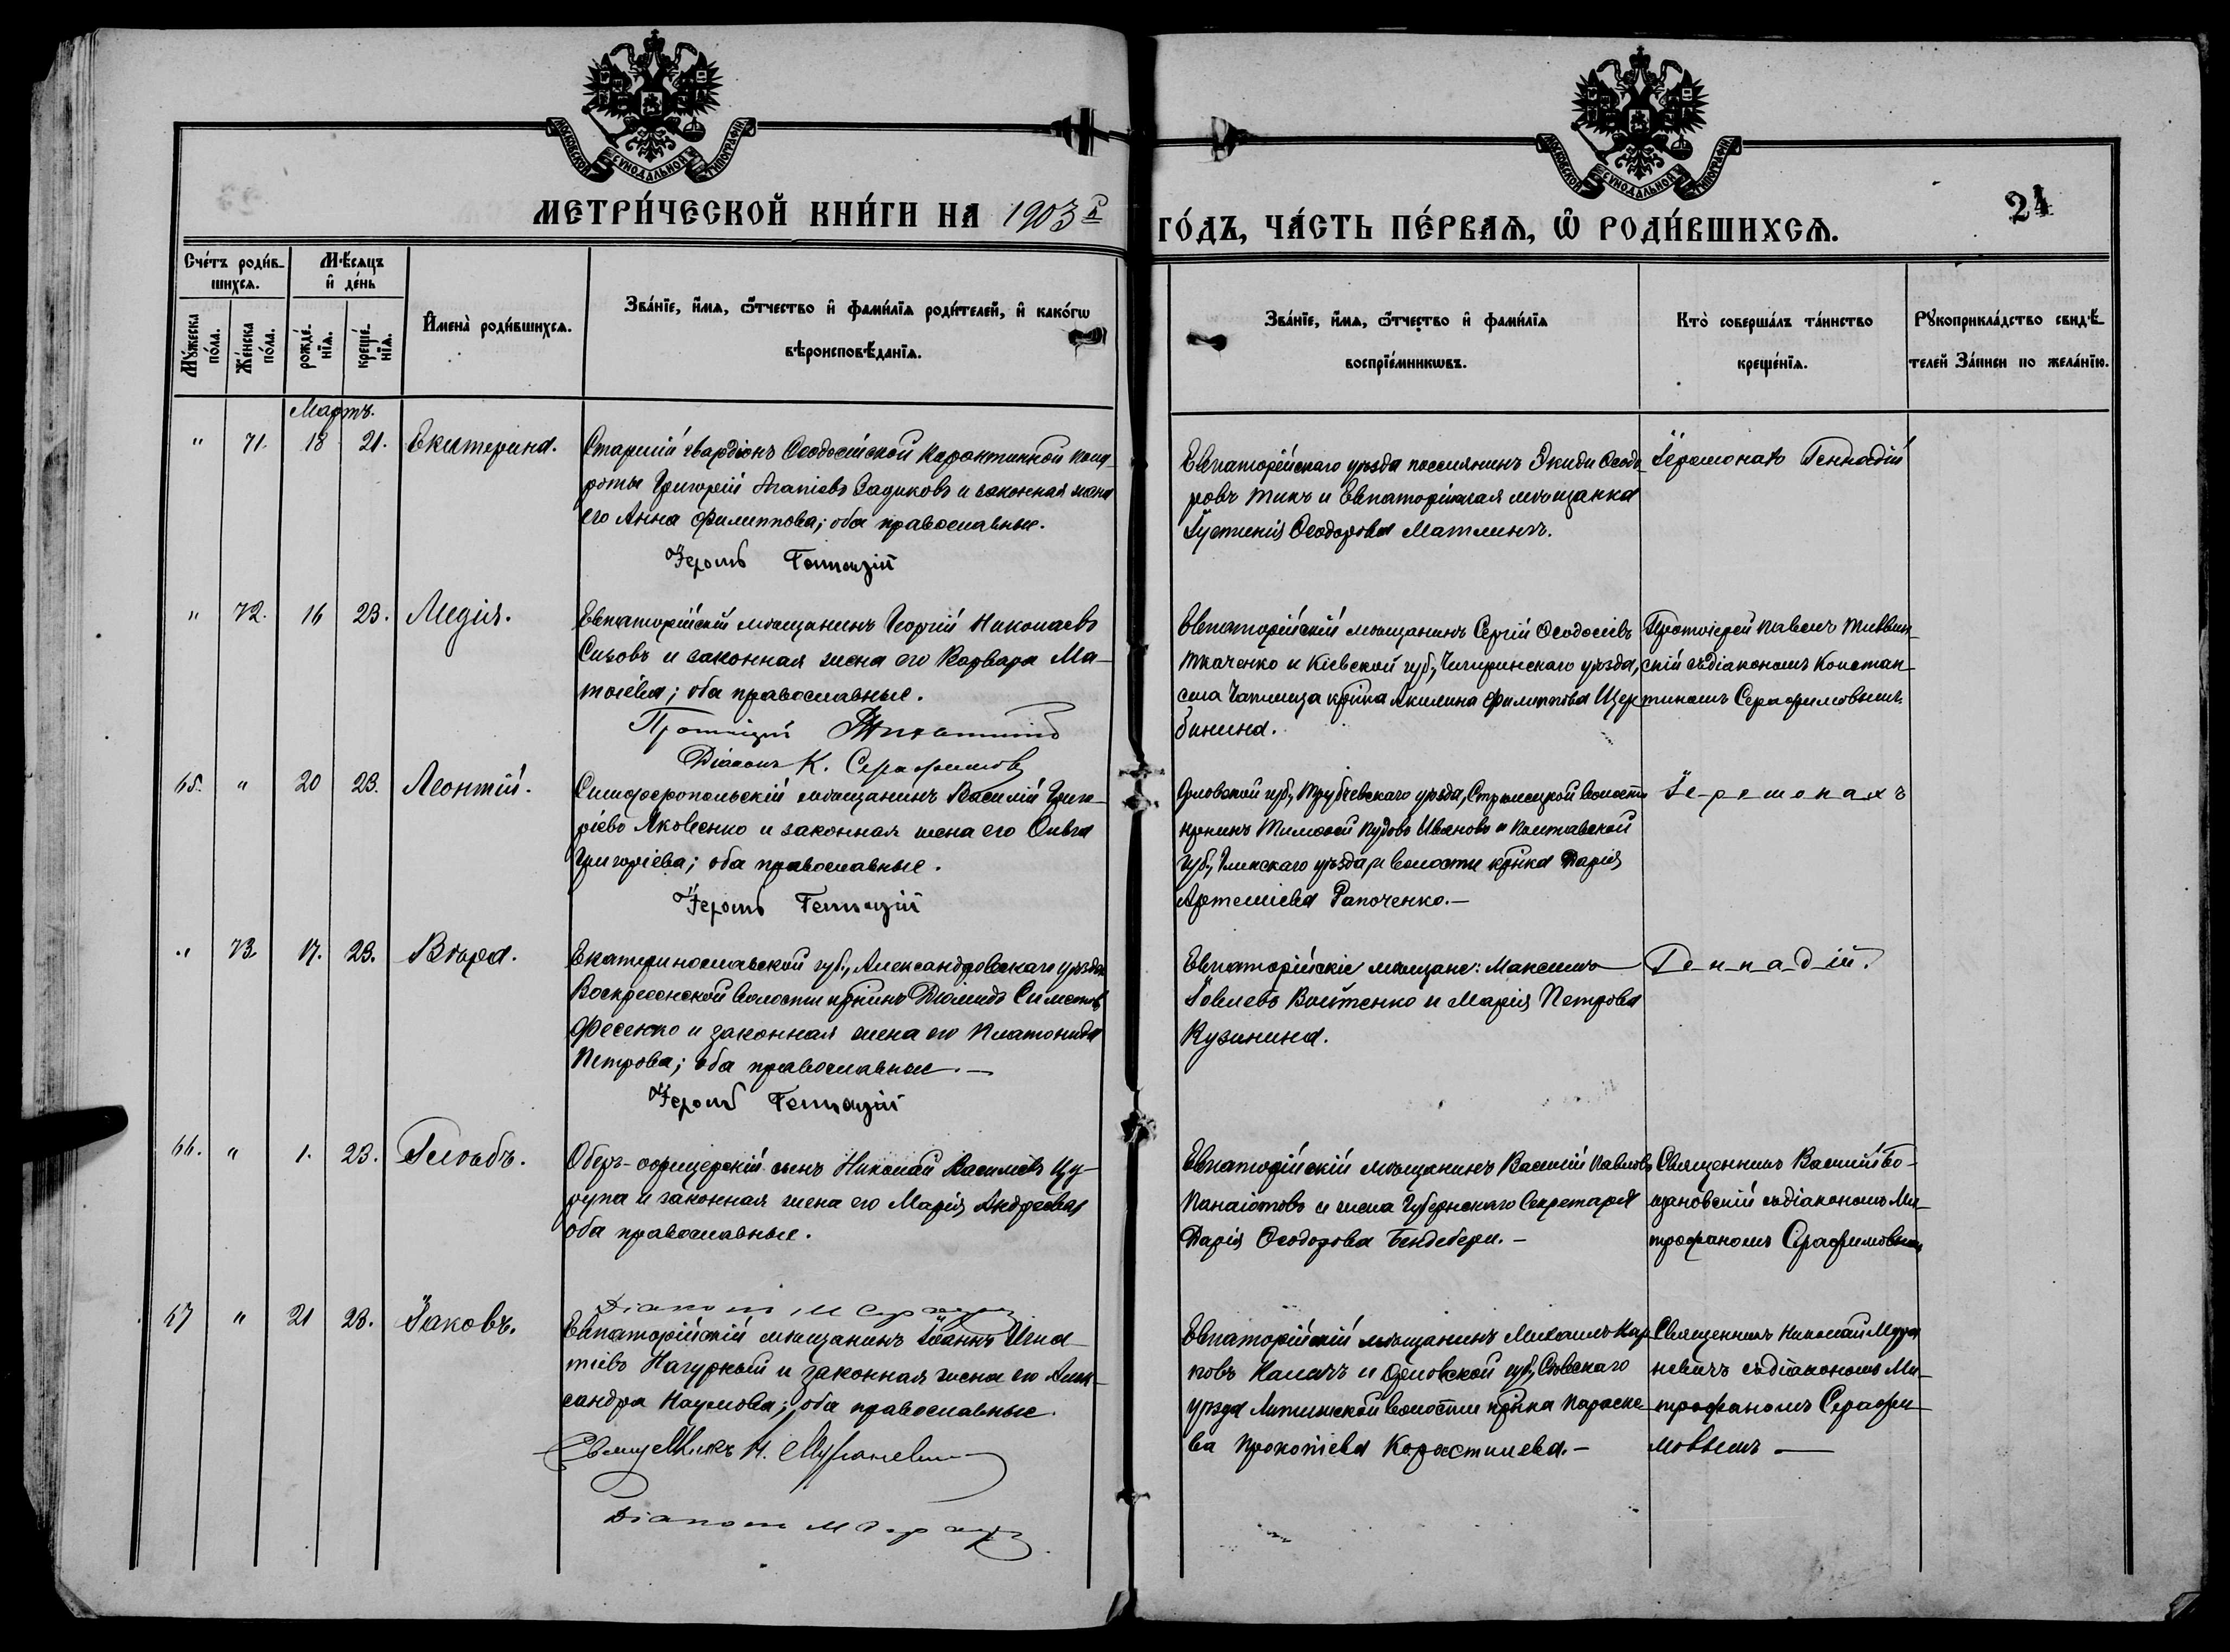 МОСКОВСКОЙ СУНОДАЛЬНОЙ ТИПОГРАФІИ
МОСКОВСКОЙ СУНОДАЛЬНОЙ ТИПОГРАФІИ
МЕТРИ́ЧЕСКОЙ КНИ́ГИ НА 1903й
ГО́ДЪ, ЧА́СТЬ ПЕ́РВАѦ, Ѡ҆ РОДИ́ВШИХСѦ.
24
Сче́тъ роди́в-
шихсѧ.
Мѣ́сяцъ
и҆ де́нь
Мꙋ́жеска по́ла.
Же́нска по́ла.
рожде́-нїѧ.
креще́-нїѧ.
И҆мена̀ роди́вшихсѧ.
Зва́нїе, и҆́мѧ, ѻ҆́тчество и҆ фами́лїѧ роди́телей, и҆ како́гѡ
вѣроисповѣ́данїѧ.
Зва́нїе, и҆́мѧ, ѻ҆́тчество и҆ фами́лїѧ
воспрїе́мникѡвъ.
Кто̀ соверша́лъ та́инство
креще́нїѧ.
Рꙋкоприкла́дство свидѣ́-
телей за́писи по жела́нїю.
Мартъ.
" 71. 18 21. Екатерина.
Старшій гвардіонъ Ѳеодосійской Карантинной Конд-
роты Григорій Ананіевъ Садиковъ и законная жена
его Анна Филиппова; оба православные.
Іером Геннадій
Евпаторійскаго уѣзда поселянинъ Экиди Ѳеодо-
ровъ Тикъ и Евпаторійская мѣщанка
Іустинія Ѳеодорова Матлинъ.
Іеромонахъ Геннадій
" 72. 16 23. Лидія.
Евпаторійскій мѣщанинъ Георгій Николаевъ
Сизовъ и законная жена его Варвара Ма-
тѳіева; оба православные.
Протоіерей
Діаконъ К. Серафимовъ
Евпаторійскій мѣщанинъ Сергій Ѳеодосіевъ
Ткаченко и Кіевской губ., Чигиринскаго уѣзда,
села кр҃нка Акилина Филиппова Щер-
бинина.
Протоіерей Павелъ
скій съ діакономъ Констан-
тиномъ Серафимовымъ.
65. " 20 23. Леонтій.
Симферопольскій мѣщанинъ Василій Григо-
ріевъ Яковенко и законная жена его Ольга
Григоріева; оба православные.
Іером Геннадій
Орловской губ., Трубчевскаго уѣзда, Стрѣлецкой волости
кр҃нинъ Тимоѳей Ивановъ и Полтавской
губ., уѣзда и волости кр҃нка Дарія
Артеміева Рапоченко.—
І-е-р-о-м-о-н-а-х-ъ
" 73. 17. 23. Вѣра.
Екатеринославской губ., Александровскаго уѣзда
Воскресенской волости кр҃нинъ Діомидъ
Фесенко и законная жена его Платонида
Петрова; оба православные.—
Іером Геннадій
Евпаторійскіе мѣщане: Максимъ
Іовлевъ Войтенко и Марія Петрова
Кузинина.
Г-е-н-н-а-д-ій.
66. " 1. 23. Глѣбъ.
Оберъ-офицерскій сынъ Николай Васильевъ Цу-
рупа и законная жена его Марія Андреева;
оба православные.
Діаконъ М Сераф
Евпаторійскій мѣщанинъ Василій Павловъ
Панаіотовъ и жена Губернскаго Секретаря
Дарія Ѳеодорова Бендебери.—
Священникъ Василій Бо-
щановскій съ діакономъ Ми-
трофаномъ Серафимовымъ
67 " 21 23. Іаковъ.
Евпаторійскій мѣщанинъ Іоаннъ Игна-
тіевъ Нагурный и законная жена его Алек-
сандра Наумова; оба православные.
Священникъ Н. Мураневичъ
Діаконъ М Сераф
Евпаторійскій мѣщанинъ Михаилъ Кар-
повъ Калачъ и Орловской губ., Сѣвскаго
уѣзда Литижской волости кр҃нка Параске-
ва Прокопіева Коростилева.—
Священникъ Николай Мура-
невичъ съ діакономъ Ми-
трофаномъ Серафи-
мовымъ —